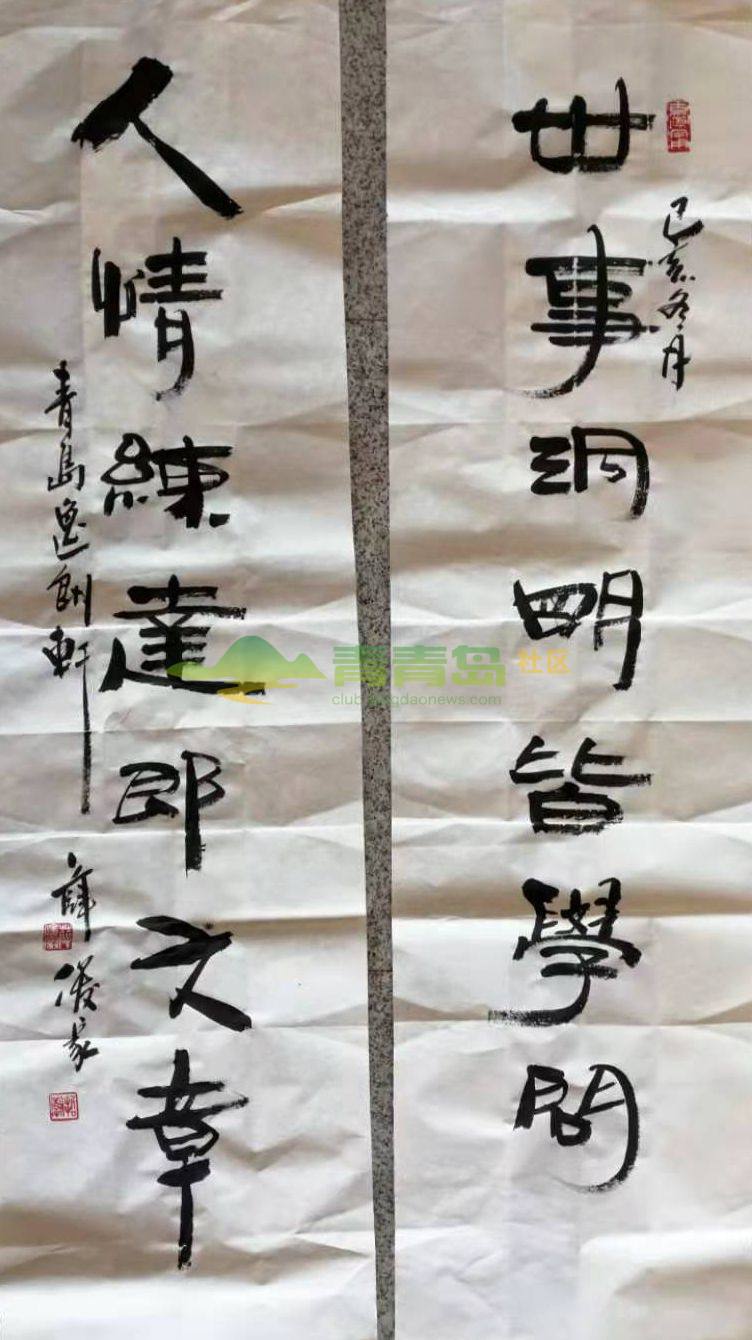 己亥冬月
世事洞明皆學問
人情練達即文章
青島軒
薛
青青岛社区
club.qingdaonews.com